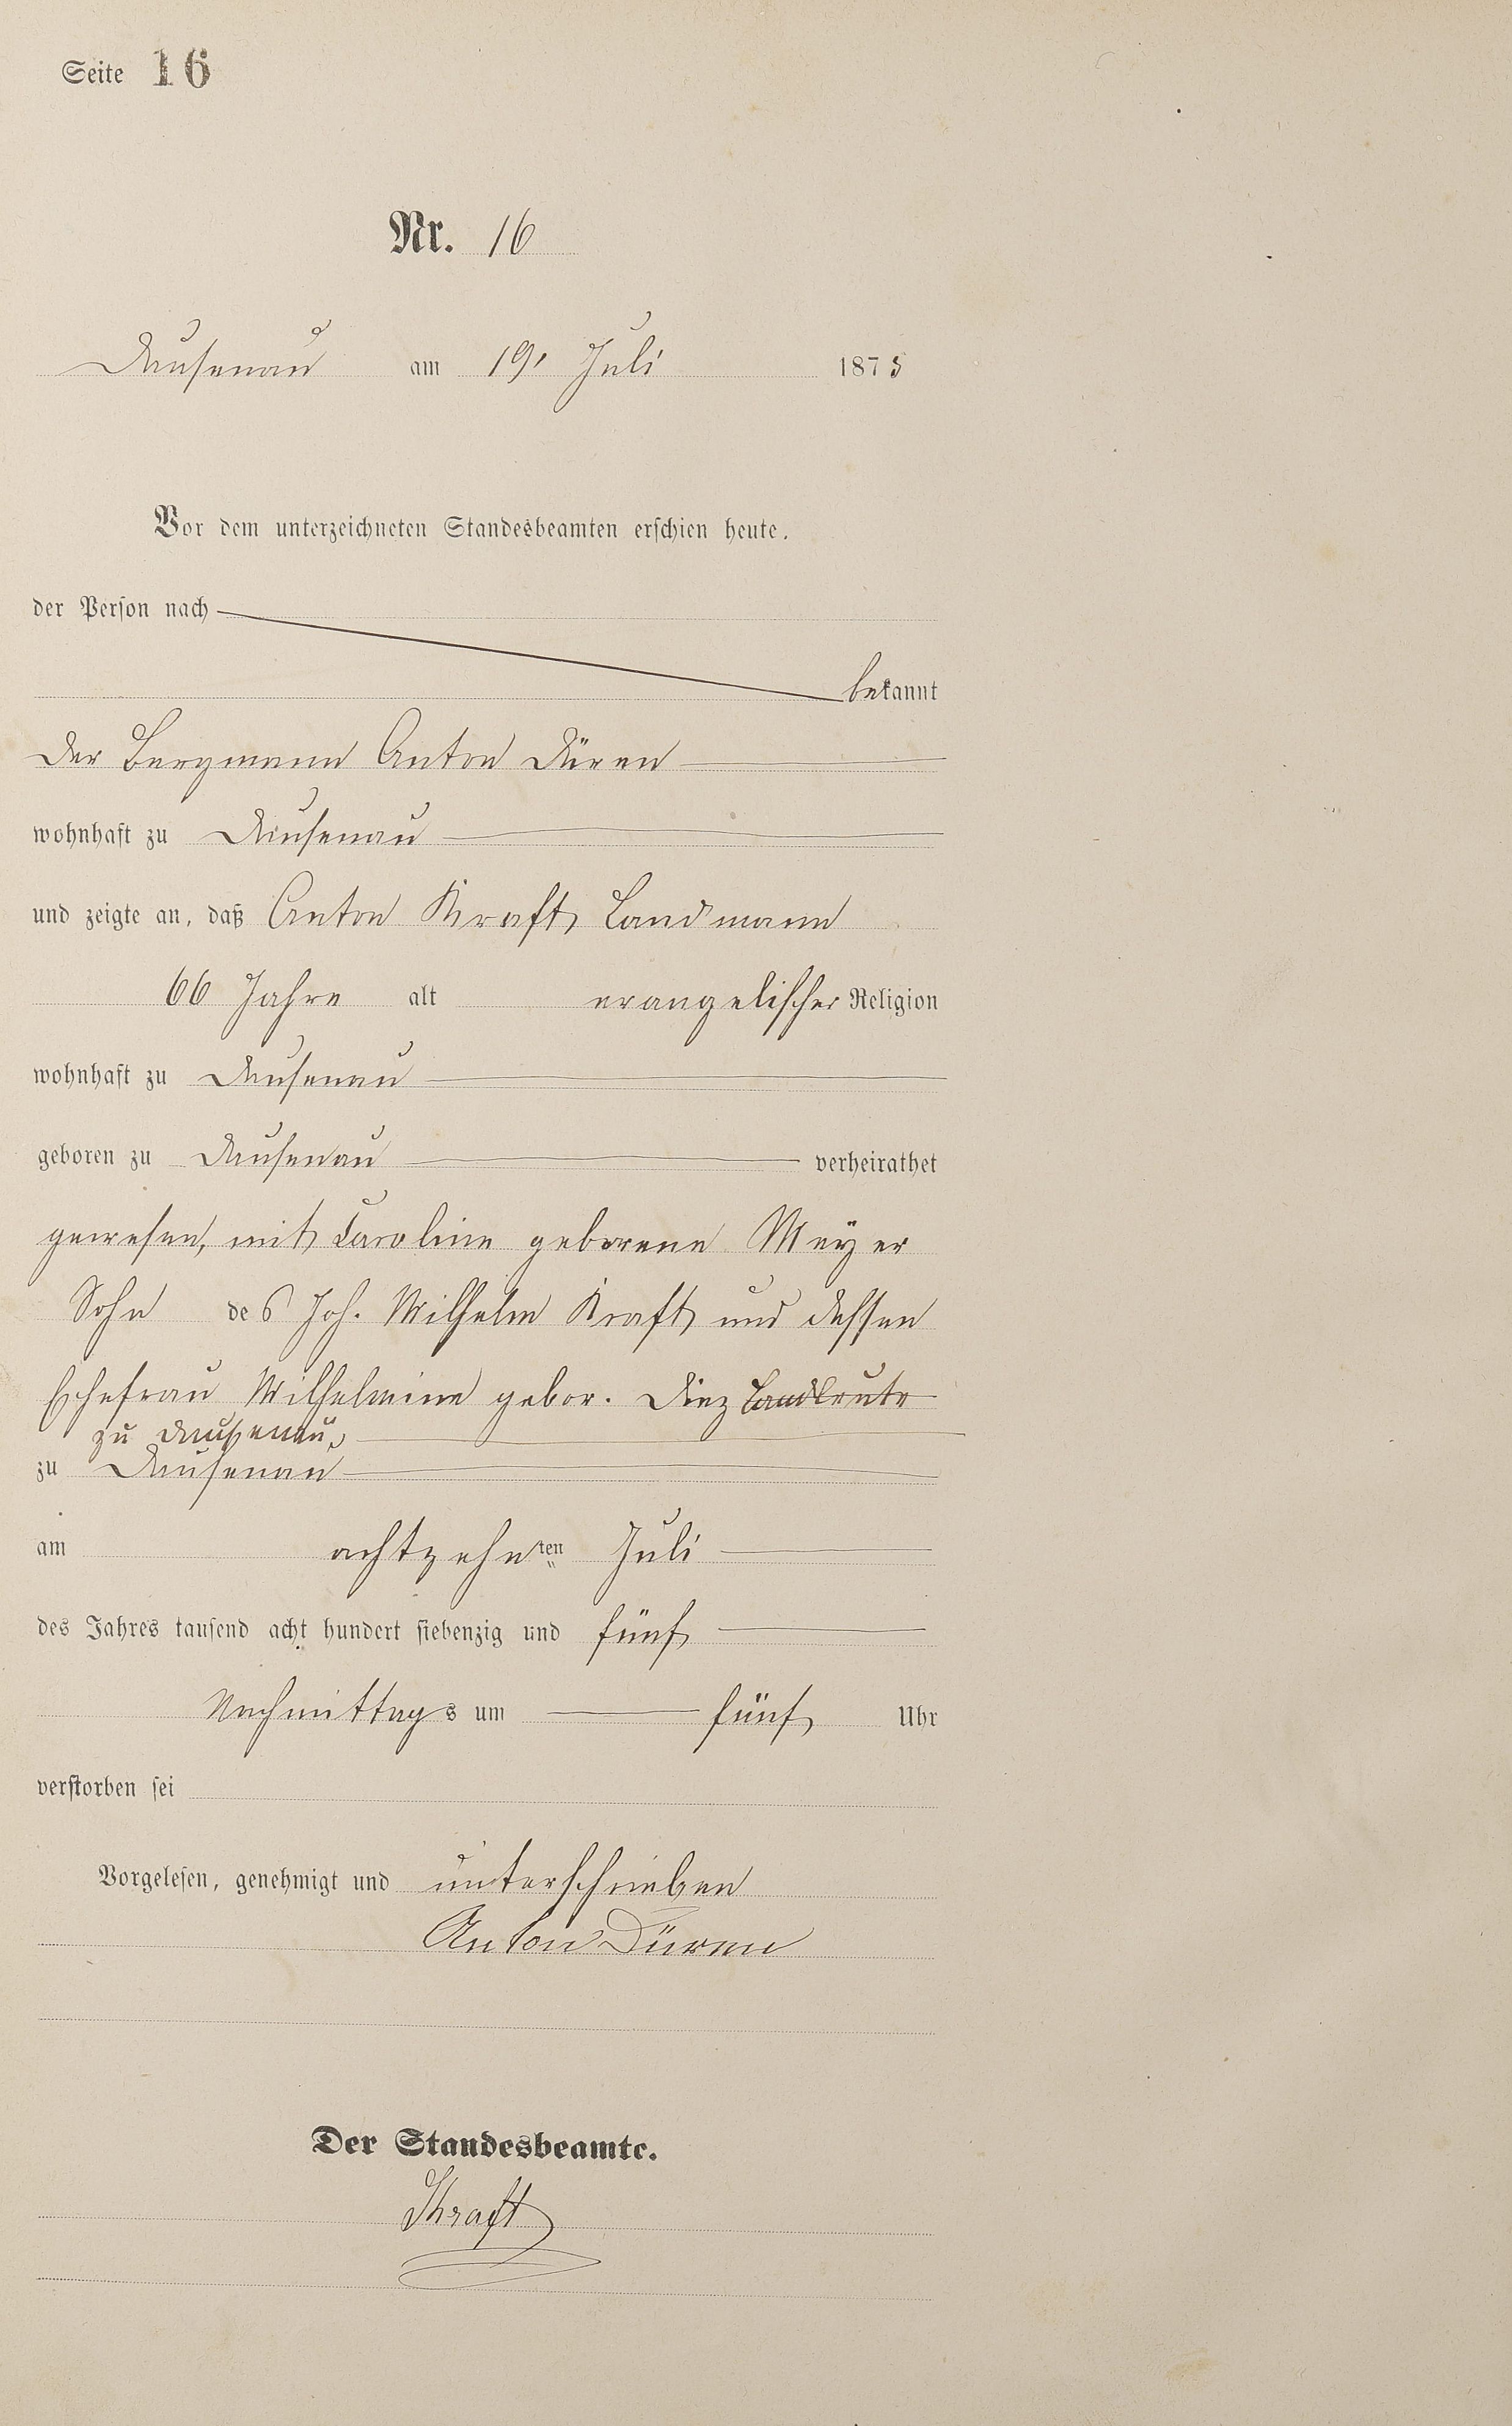 Seite 16
Nr. 16
Dausenau am 19' Juli 1875
Vor dem unterzeichneten Standesbeamten erschien heute,
der Person nach
bekannt
der Bergmann Anton Düren
wohnhaft zu Dausenau
und zeigte an, daß Anton Kraft, Landmann
66 Jahre alt evangelischer Religion
wohnhaft zu Dausenau
geboren zu Dausenau verheirathet
gewesen, mit Caroline geborene Meÿer
Sohn des Joh. Wilhelm Kraft und dessen
Ehefrau Wilhelmine gebor. Diez Landleute
zu Dausenau,
zu Dausenau
am achtzehnten Juli
des Jahres tausend acht hundert siebenzig und fünf
Nachmittags um fünf Uhr
verstorben sei
Vorgelesen, genehmigt und unterschrieben
Anton Düren
Der Standesbeamte.
Kraft